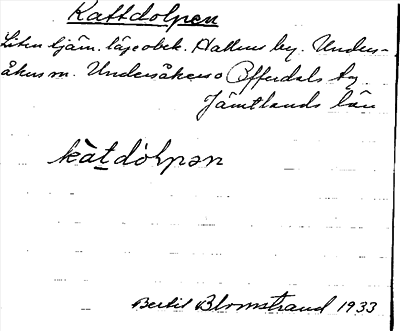 Kattdolpen
Liten tjärn. läge obek. Hallens by. Unders-
åkers sn. Undersåkers o Offerdals tg
Jämtlands län
kàt̲dòlpən
Bertil Blomstrand 1933